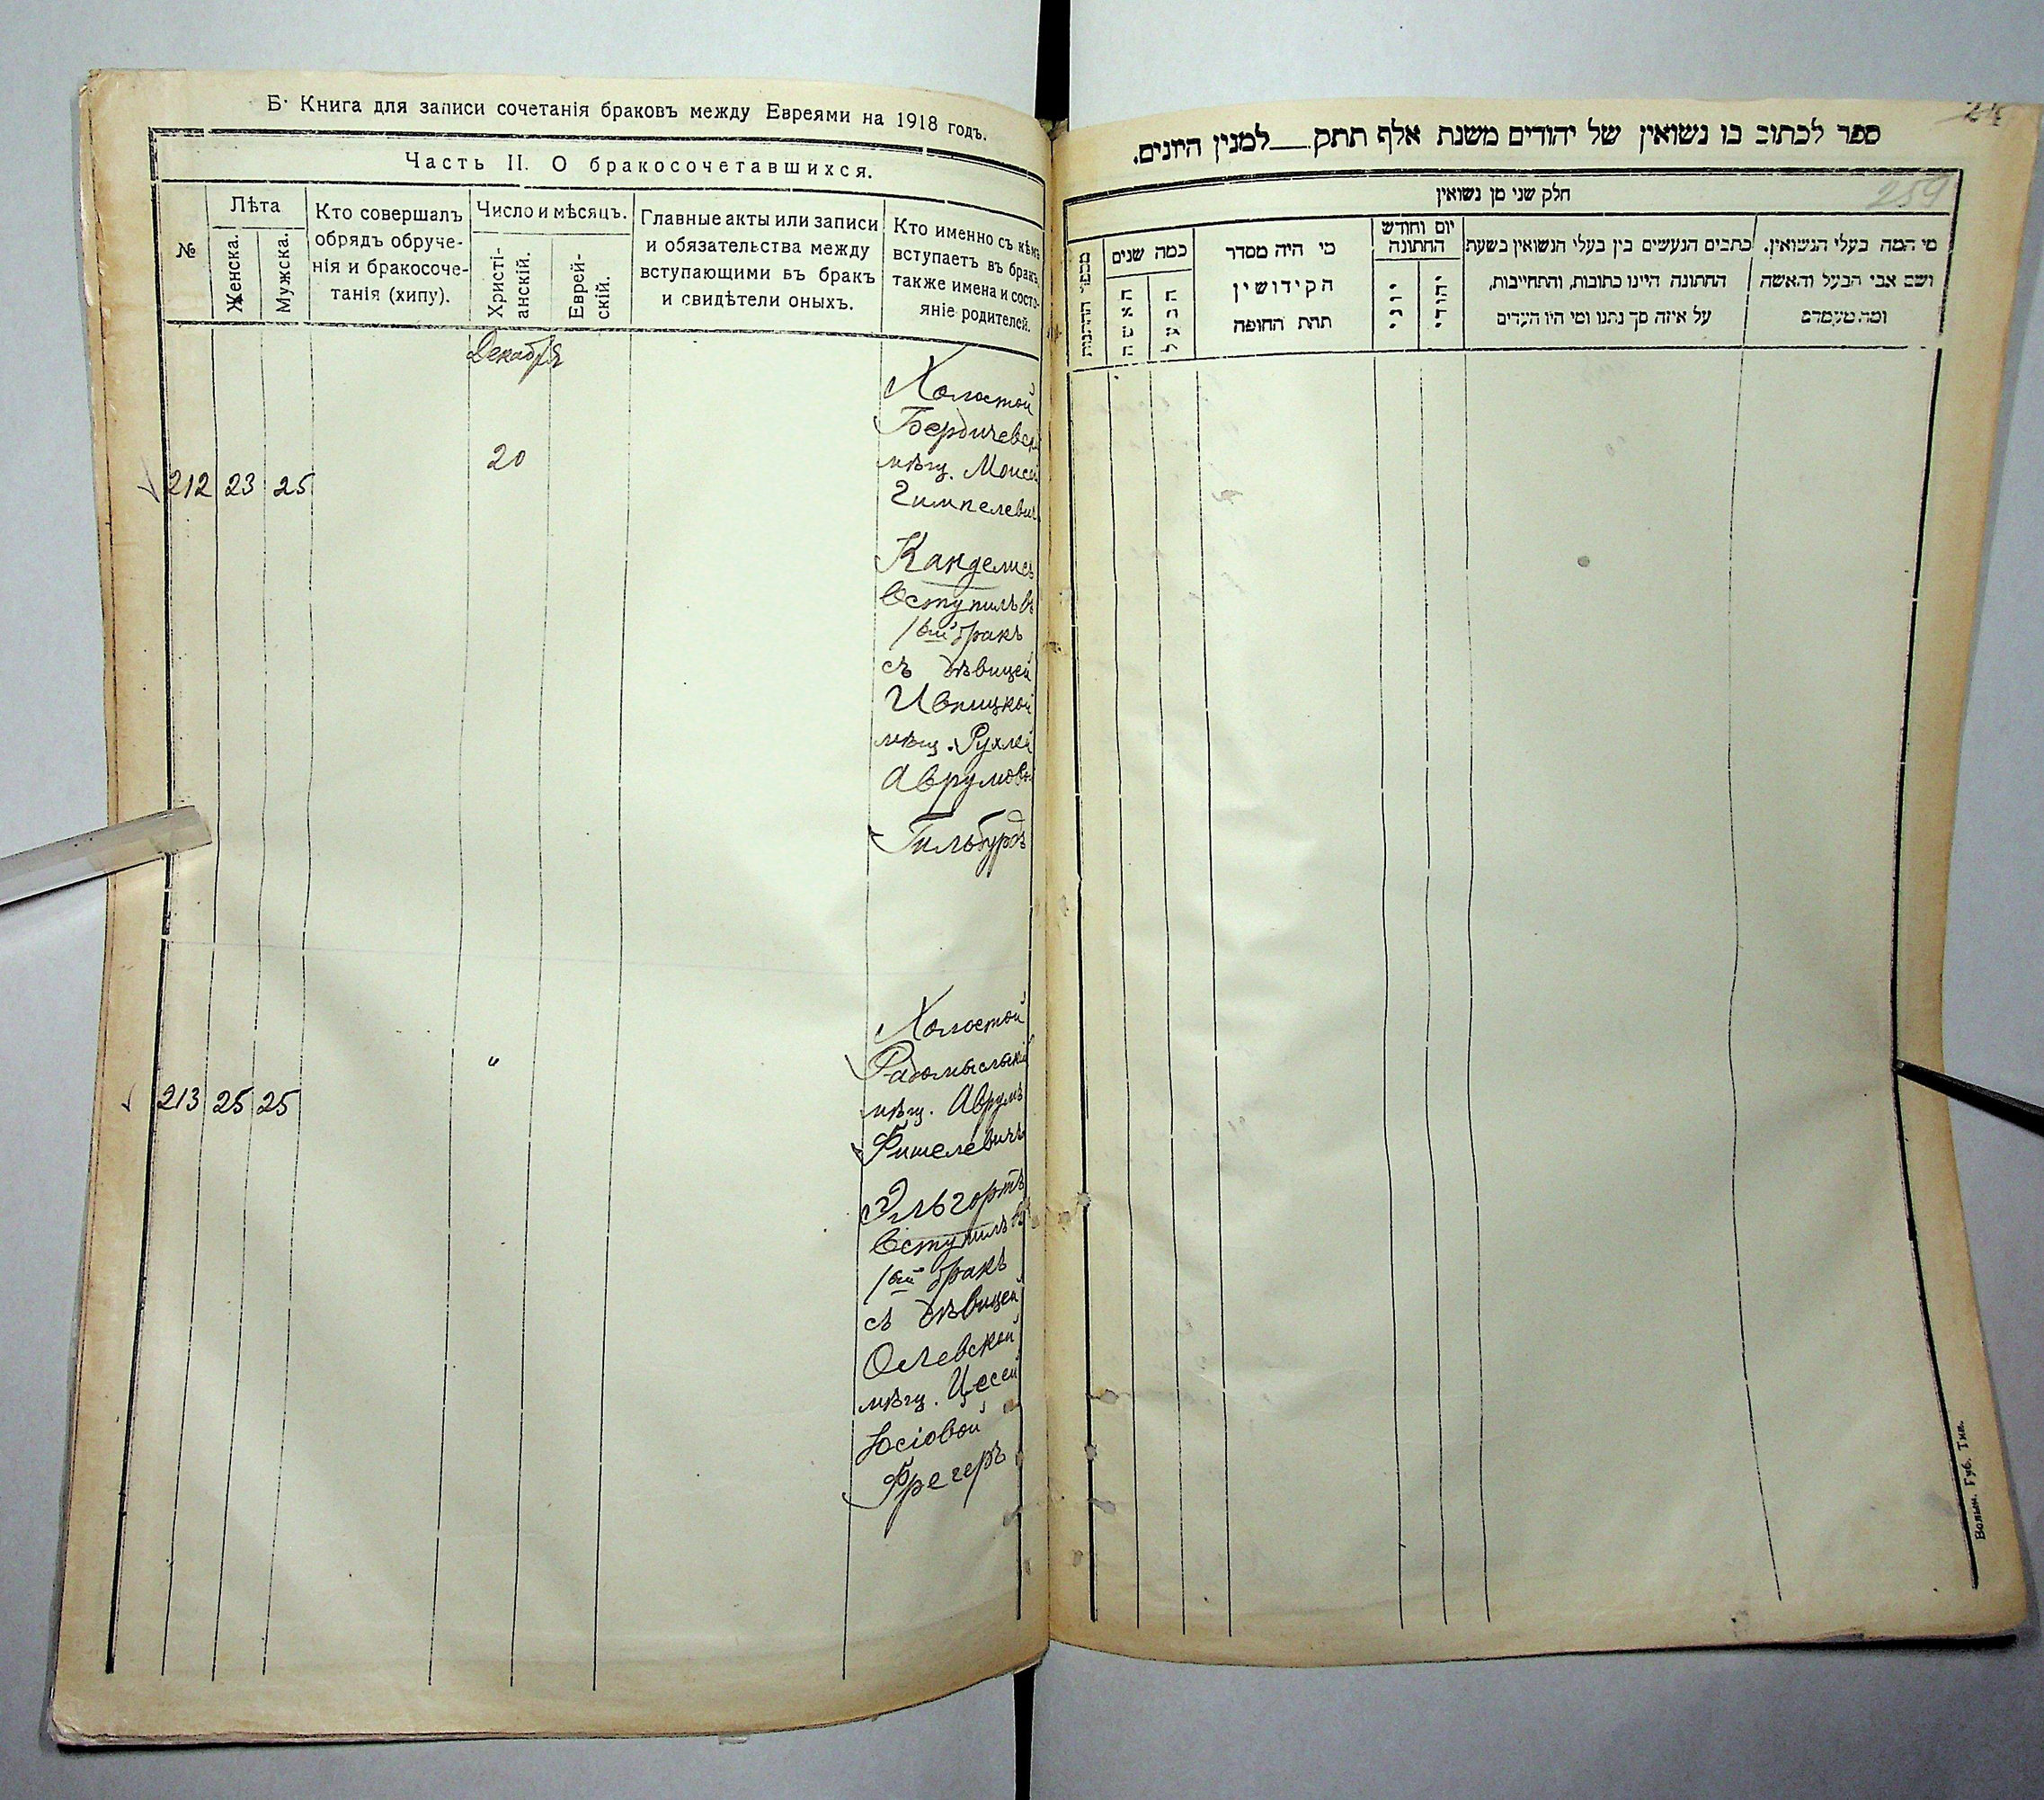 Б. Книга для записи сочетанія браковъ между Евреями на 1918 годъ.
Часть II. О бракосочетавшихся.
№
Лѣта
Женска.
Мужска.
Кто совершалъ
обрядъ обруче-
нія и бракосоче-
танія (хипу).
Число и мѣсяцъ.
Христі-
анскій.
Еврей-
скій.
Главные акты или записи
и обязательства между
вступающими въ бракъ
и свидѣтели оныхъ.
Кто именно съ кѣмъ
вступаетъ въ бракъ,
также имена и состо-
яніе родителей.
Декабря
212 23 25
20
Холостой
Бердичевск
мѣщ. Моисей
Гимпелевич
Канделисъ
вступилъ въ
1вый бракъ
съ дѣвицей
Ивницкой
мѣщ. Рухлей
Аврумов
Гильбурдъ
213 25 25
"
Холостой
Радомысльскій
мѣщ. Аврумъ
Фишелевичъ
Эльгортъ
вступилъ въ
1вый бракъ
съ дѣвицей
Олевской
мѣщ. Цесей
Іосіовой
Фрегеръ
ספר לכתוב בו נשואין של יהודים משנת אלף תתק__למנין היונים.
259
חלק שני מן נשואין
מי המה בעלי הנשואין.
ושם אבי הבעל והאשה
ומה מעמדם
כתבים הנעשים בין בעלי הנשואין בשעת
החתונה היינו כתובות, והתחייבות,
על איזה סך נתנו ומי היו העדים
יום וחודש
החתונה
יהודי
יוני
מי היה מסדר
הקידושין
תחת החופה
כמה שנים
הבעל
האשה
Волын. Губ. Тип.